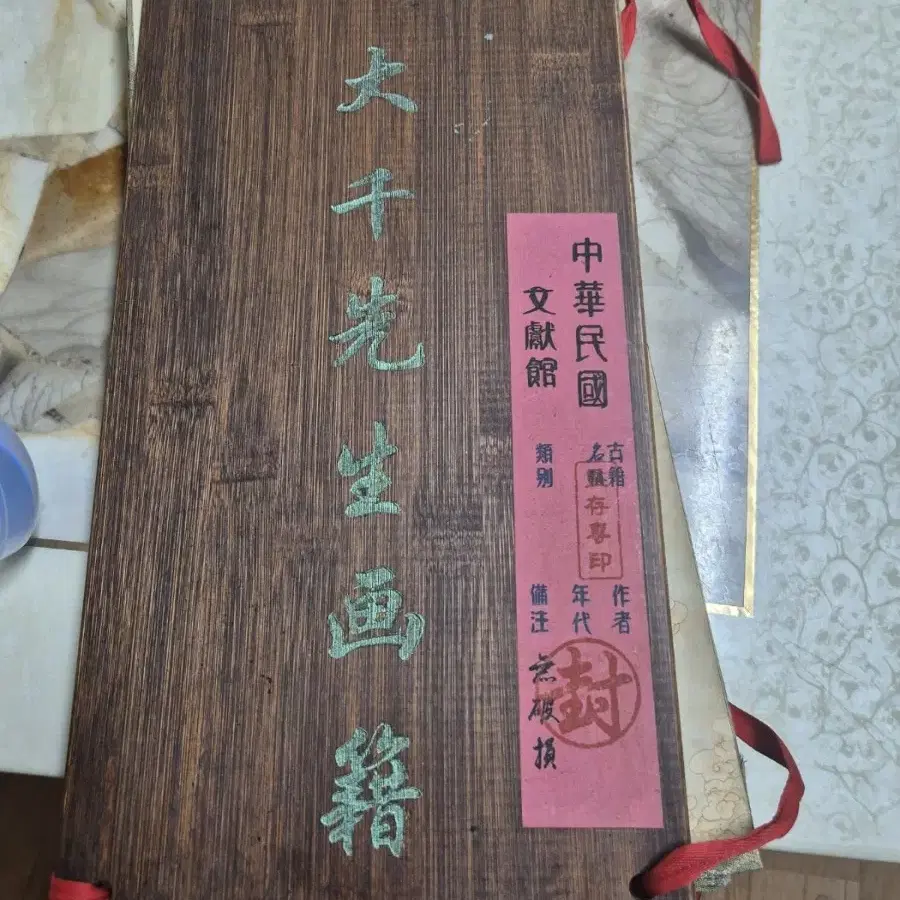 大千先生画籍
中華民國
文獻館
古籍
名
類别
存専印
作者
年代
備注
無破損
封